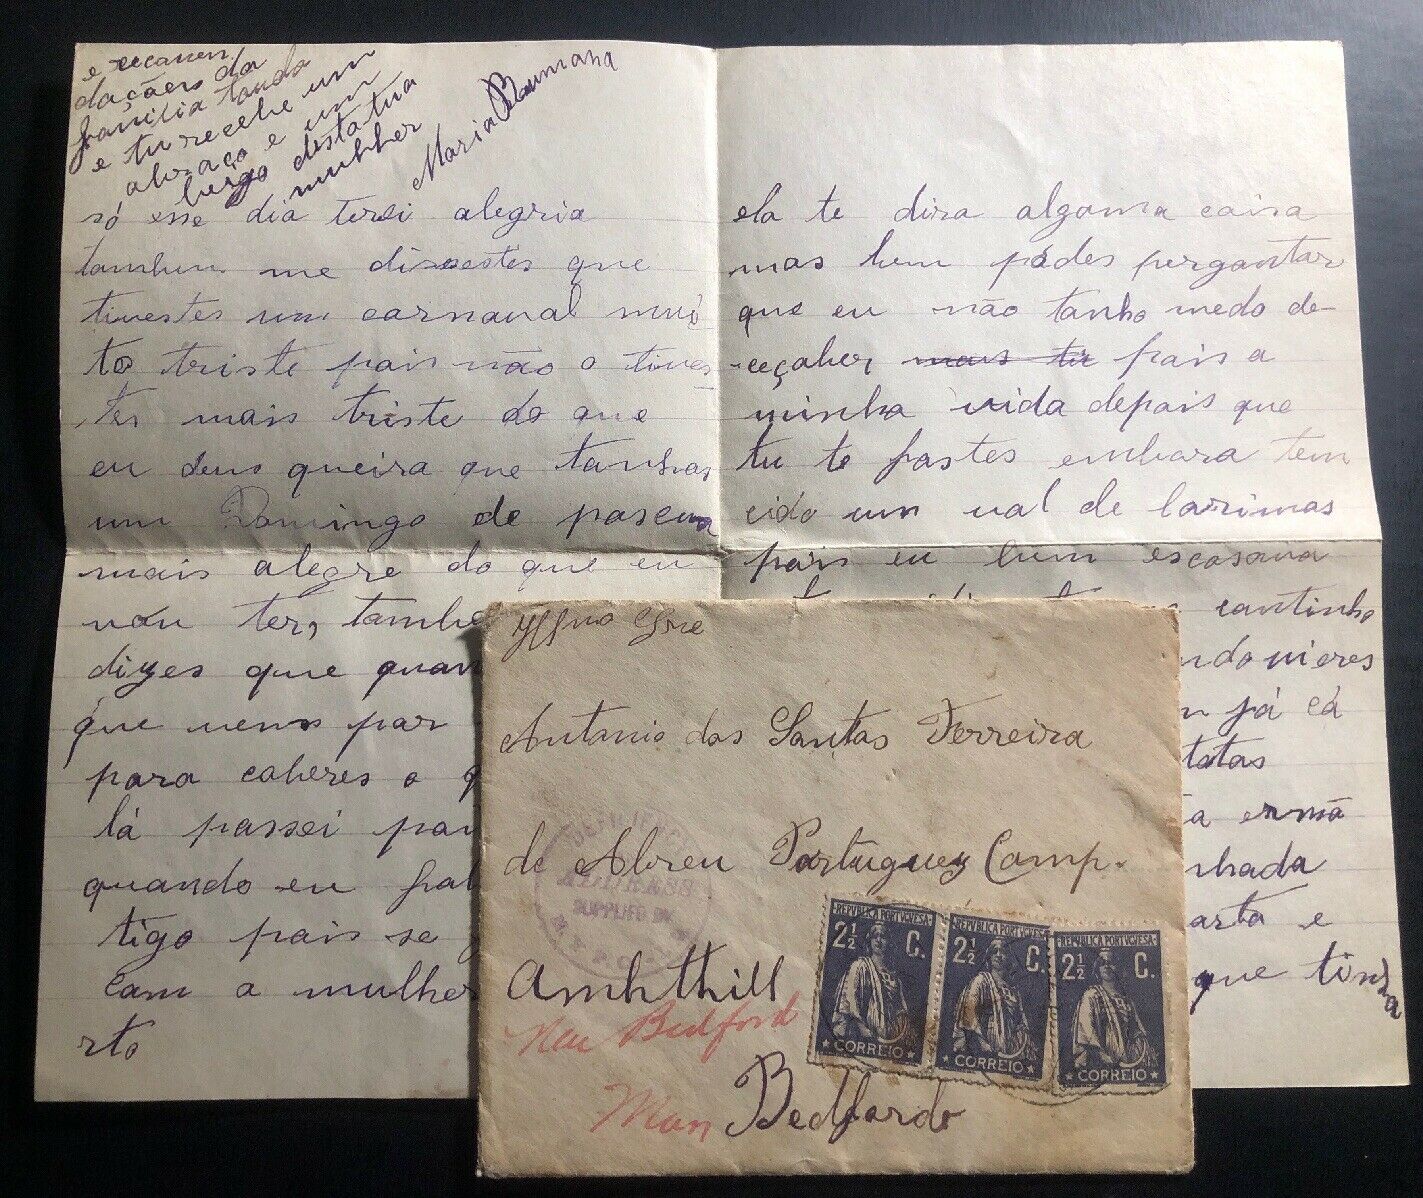 e recumen
dações da
familia touda
e tu recebe um
abraço e um
beijo desta tua
mulher
Maria Raumana
só esse dia terei alegria
tambem me dissestes que
tivestes um carnaval mui
to triste pois não o tives
tes mais triste do que
eu deus queira que tanhas
um Domingo de pascua
mais alegre do que eu
vou ter, tambe
dizes que quan
que vens par
para caberes o q
lá passei par
quando eu fal
tigo pois se
com a mulher
rto
ela te dira algoma coisa
mas bem pódes pergontar
que eu não tanho medo de
ceçaber mais tu pois a
minha vida depois que
tu te fostes embora tem
cido um val de larimas
pois eu bem escosava
cantinho
ndo vieres
já cá
totas
a ermã
nhada
arta e
que tinha
Illmo Snre
Antonio dos Santos Ferreira
de Abreu Portuguez Camp.
Amhthill
New Bedford
Man Bedfordo
DEFICIENCY
ADDRESS
SUPPLIED BY
REPUBLICA PORTUGUESA
2½ C.
CORREIO
REPUBLICA PORTUGUESA
2½ C.
CORREIO
REPUBLICA PORTUGUESA
2½ C.
CORREIO